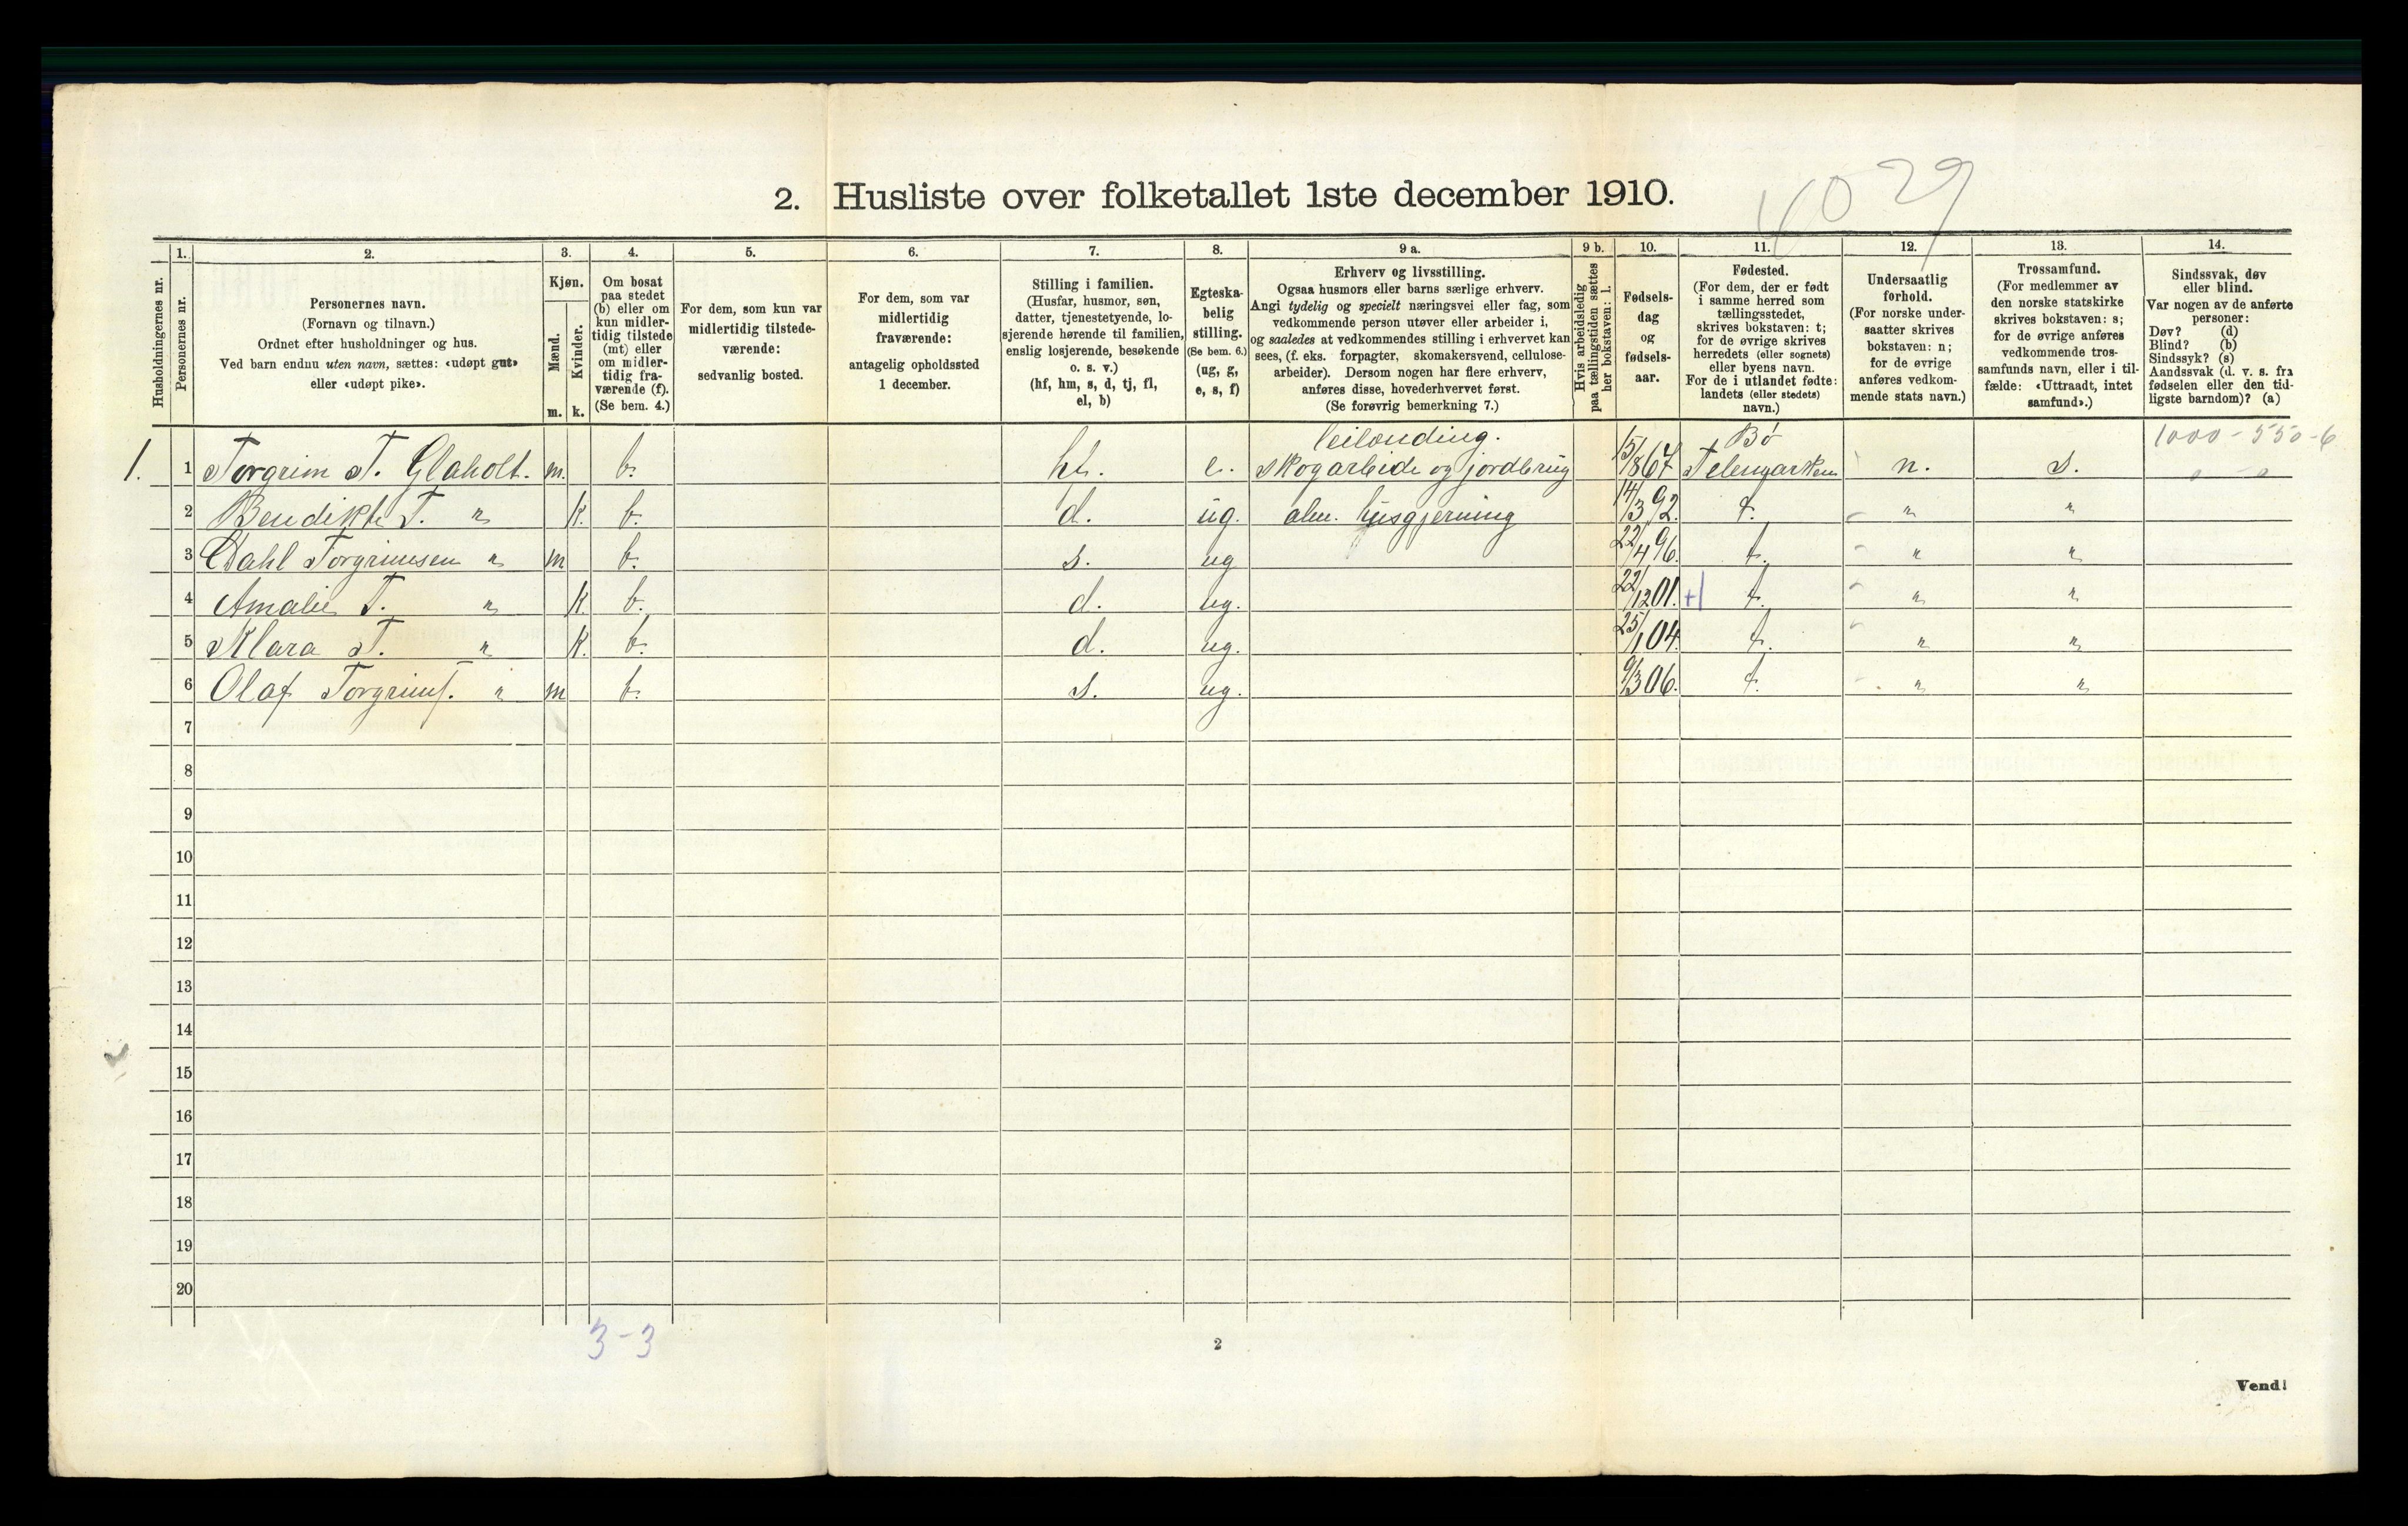 4029
2. Husliste over folketallet 1ste december 1910.
Husholdningernes nr.
1.
Personernes nr.
2.
Personernes navn.
(Fornavn og tilnavn.)
Ordnet efter husholdninger og hus.
Ved barn endnu uten navn, sættes: «udøpt gut»
eller «udøpt pike».
3.
Kjøn.
Mænd.
Kvinder.
m. k.
4.
Om bosat
paa stedet
(b) eller om
kun midler-
tidig tilstede
(mt) eller
om midler-
tidig fra-
værende (f).
(Se bem. 4.)
5.
For dem, som kun var
midlertidig tilstede-
værende:
sedvanlig bosted.
6.
For dem, som var
midlertidig
fraværende:
antagelig opholdssted
1 december.
7.
Stilling i familien.
(Husfar, husmor, søn,
datter, tjenestetyende, lo-
sjerende hørende til familien,
enslig losjerende, besøkende
o. s. v.)
(hf, hm, s, d, tj, fl,
el, b)
8.
Egteska-
belig
stilling.
(Se bem. 6.)
(ug, g,
e, s, f)
9 a.
Erhverv og livsstilling.
Ogsaa husmors eller barns særlige erhverv.
Angi tydelig og specielt næringsvei eller fag, som
vedkommende person utøver eller arbeider i,
og saaledes at vedkommendes stilling i erhvervet kan
sees, (f. eks. forpagter, skomakersvend, cellulose-
arbeider). Dersom nogen har flere erhverv,
anføres disse, hovederhvervet først.
(Se forøvrig bemerkning 7.)
9 b.
Hvis arbeidsledig
paa tællingstiden sættes
her bokstaven: l.
10.
Fødsels-
dag
og
fødsels-
aar.
11.
Fødested.
(For dem, der er født
i samme herred som
tællingsstedet,
skrives bokstaven: t;
for de øvrige skrives
herredets (eller sognets)
eller byens navn.
For de i utlandet fødte:
landets (eller stedets)
navn.)
12.
Undersaatlig
forhold.
(For norske under-
saatter skrives
bokstaven: n;
for de øvrige
anføres vedkom-
mende stats navn.)
13.
Trossamfund.
(For medlemmer av
den norske statskirke
skrives bokstaven: s;
for de øvrige anføres
vedkommende tros-
samfunds navn, eller i til-
fælde: «Uttraadt, intet
samfund».)
14.
Sindssvak, døv
eller blind.
Var nogen av de anførte
personer:
Døv? (d)
Blind? (b)
Sindssyk? (s)
Aandssvak (d. v. s. fra
fødselen eller den tid-
ligste barndom)? (a)
leilending. Bø 1000-550-6
1. 1 Torgrim T. Glaholt. m. b. hf. e. skogarbeide og jordbrug 15/8 67 Telemarken n. s.
2 Bendikte T. " k. b. d. ug. alm. husgjerning 14/3 92. t. " "
3 Dahl Torgrimsen " m b. s. ug 22/4 96. t. " "
4 Amalie T. " k. b. d. ug. 22/12 01. +1 t. " "
5 Klara T. " k. b. d. ug. 25/1 04. t. " "
6 Olaf Torgrims. " m b. s. ug. 9/3 06. t. " "
7
8
9
10
11
12
13
14
15
16
17
18
19
20
3-3
2
Vend!